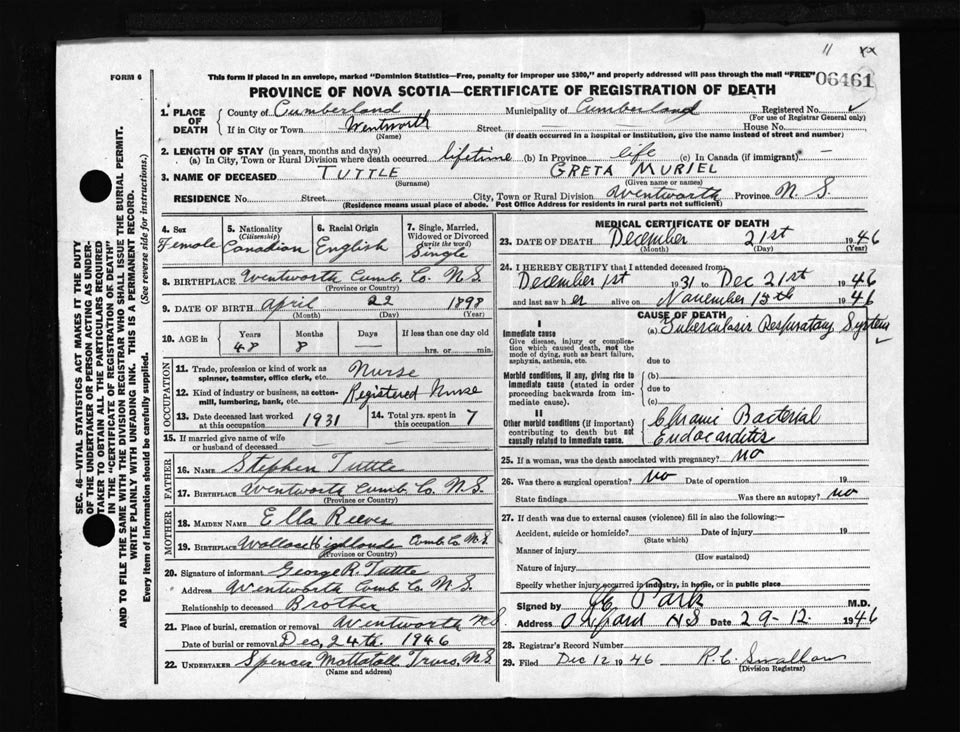 11 xx
FORM 6
This form if placed in an envelope, marked "Dominion Statistics—Free, penalty for improper use $300," and properly addressed will pass through the mail "FREE"
06461
PROVINCE OF NOVA SCOTIA—CERTIFICATE OF REGISTRATION OF DEATH
1. PLACE OF DEATH County of Cumberland Municipality of Cumberland Registered No. ✓
(For use of Registrar General only)
If in City or Town Wentworth Street House No.
(Name) (If death occurred in a hospital or institution, give the name instead of street and number)
2. LENGTH OF STAY (in years, months and days)
(a) In City, Town or Rural Division where death occurred lifetime (b) In Province life (c) In Canada (if immigrant) —
3. NAME OF DECEASED TUTTLE GRETA MURIEL
(Surname) (Given name or names)
RESIDENCE No. Street City, Town or Rural Division Wentworth Province N.S.
(Residence means usual place of abode. Post Office Address for residents in rural parts not sufficient)
4. Sex Female
5. Nationality (Citizenship) Canadian
6. Racial Origin English
7. Single, Married, Widowed or Divorced (write the word) Single
8. BIRTHPLACE Wentworth Cumb. Co. N.S.
(Province or Country)
9. DATE OF BIRTH April 22 1898
(Month) (Day) (Year)
10. AGE in Years Months Days If less than one day old
48 8 — hrs. or min.
OCCUPATION
11. Trade, profession or kind of work as spinner, teamster, office clerk, etc. Nurse
12. Kind of industry or business, as cotton-mill, lumbering, bank, etc. Registered Nurse
13. Date deceased last worked at this occupation 1931
14. Total yrs. spent in this occupation 7
15. If married give name of wife or husband of deceased —
FATHER
16. NAME Stephen Tuttle
17. BIRTHPLACE Wentworth Cumb. Co. N.S.
(Province or Country)
MOTHER
18. MAIDEN NAME Ella Reeves
19. BIRTHPLACE Wallace Highlands Cumb. Co. N.S.
(Province or Country)
20. Signature of informant George R. Tuttle
Address Wentworth Comb. Co. N.S.
Relationship to deceased Brother
21. Place of burial, cremation or removal Wentworth N.S.
Date of burial or removal Dec, 24th, 1946
22. UNDERTAKER Spencer Mattatall Truro, N.S.
(Name and address)
MEDICAL CERTIFICATE OF DEATH
23. DATE OF DEATH December 21st 1946
(Month) (Day) (Year)
24. I HEREBY CERTIFY that I attended deceased from
December 1st 1931 to Dec 21st 1946
and last saw her alive on November 15th 1946
CAUSE OF DEATH
I
Immediate cause
Give disease, injury or complication which caused death, not the mode of dying, such as heart failure, asphyxia, asthenia, etc.
(a) Tuberculosis Respiratory System ✓
due to
Morbid conditions, if any, giving rise to immediate cause (stated in order proceeding backwards from immediate cause).
(b)
due to
(c)
II
Other morbid conditions (if important) contributing to death but not causally related to immediate cause.
Chronic Bacterial
Endocarditis
25. If a woman, was the death associated with pregnancy? no
26. Was there a surgical operation? no Date of operation 19
State findings Was there an autopsy? no
27. If death was due to external causes (violence) fill in also the following:—
Accident, suicide or homicide? Date of injury 19
(State which)
Manner of injury
(How sustained)
Nature of injury
Specify whether injury occurred in industry, in home, or in public place
Signed by Park M.D.
Address Oxford NS Date 29-12. 1946
28. Registrar's Record Number
29. Filed Dec 12 1946 R. C. Swallow
(Division Registrar)
SEC. 46—VITAL STATISTICS ACT MAKES IT THE DUTY
OF THE UNDERTAKER OR PERSON ACTING AS UNDER-
TAKER TO OBTAIN ALL THE PARTICULARS REQUIRED
IN THE "CERTIFICATE OF REGISTRATION OF DEATH"
AND TO FILE THE SAME WITH THE DIVISION REGISTRAR WHO SHALL ISSUE THE BURIAL PERMIT.
WRITE PLAINLY WITH UNFADING INK. THIS IS A PERMANENT RECORD.
Every item of information should be carefully supplied. (See reverse side for instructions.)